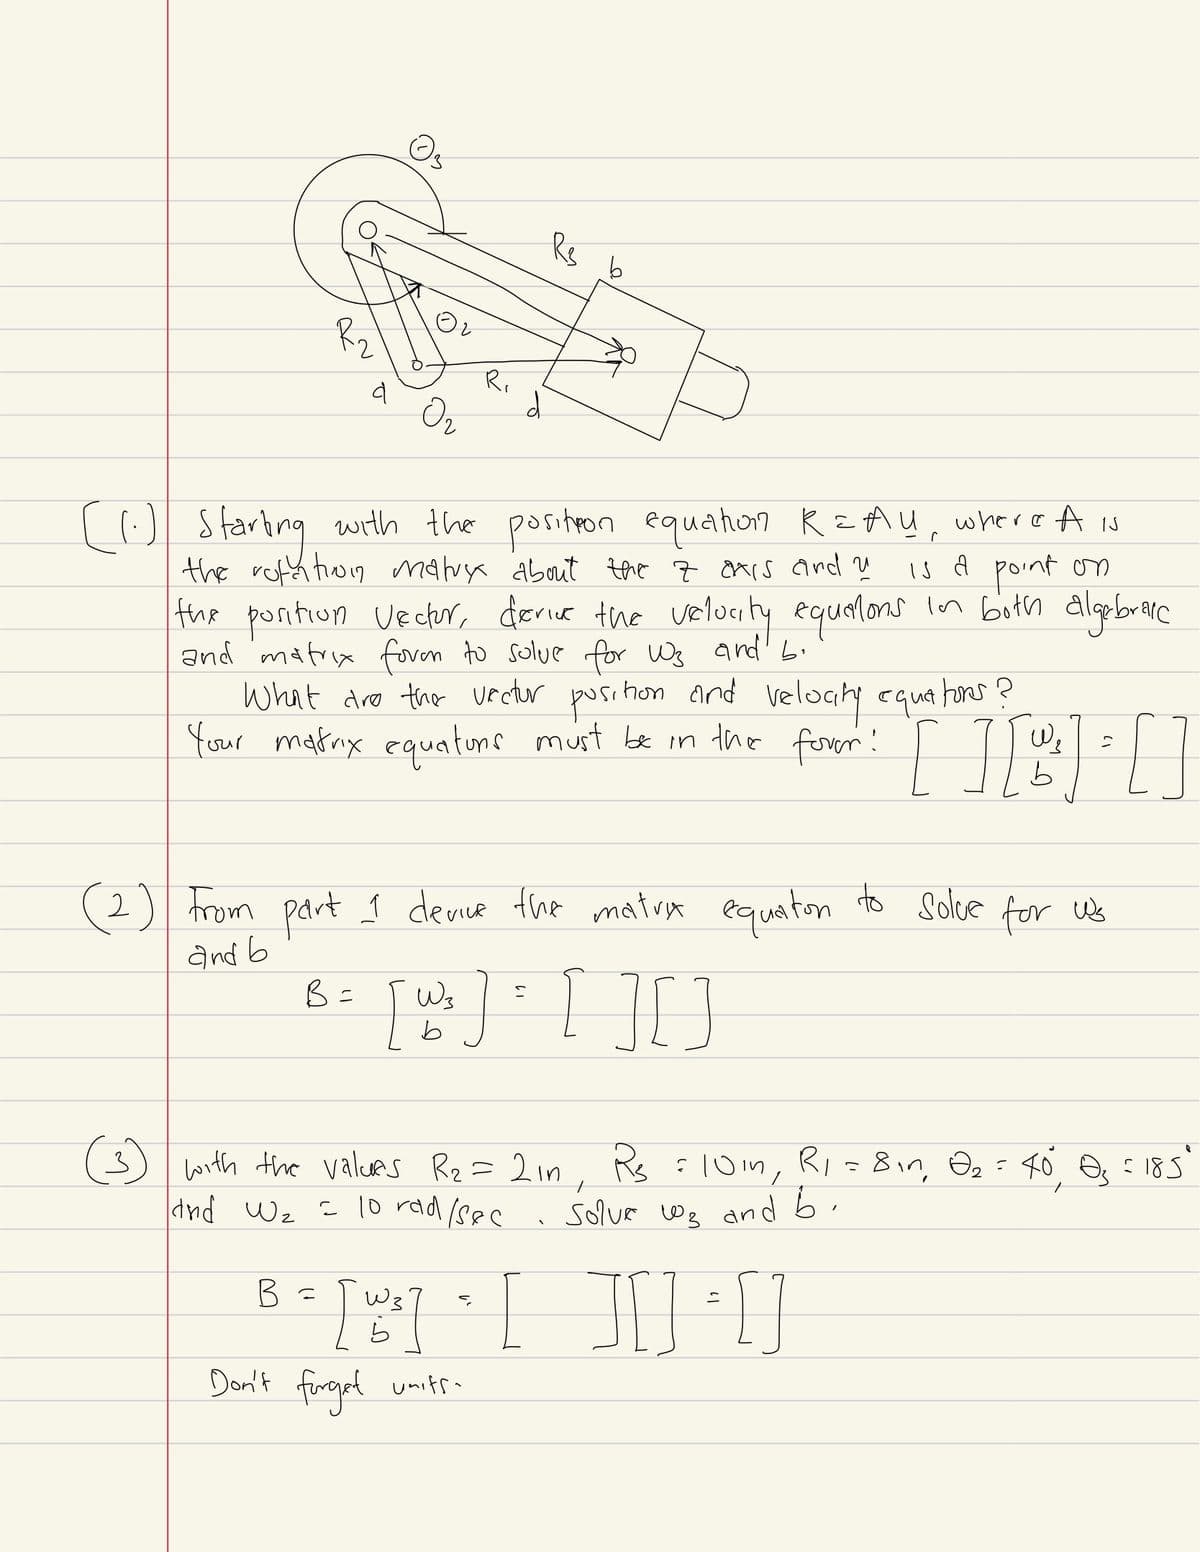 Θ3
R3 b
Θ2
R2
R1
a
d
O2
[(1.) Starting with the position equation R = A u, where A is
the rotation matrix about the z axis and u is a point on
the position vector, derive the velocity equations in both algebraic
and matrix form to solve for ω3 and ḃ.
What are the vector position and velocity equations?
Your matrix equations must be in the form: [ ] [ω3 ḃ] = [ ]
(2) From part 1 derive the matrix equation to solve for ω3
and ḃ
B = [ω3 ḃ] = [ ] [ ]
(3) with the values R2 = 2 in, R3 = 10 in, R1 = 8 in, Θ2 = 40°, Θ3 = 185°
and ω2 = 10 rad/sec. Solve ω3 and ḃ.
B = [ω3 ḃ] = [ ] [ ] = [ ]
Don't forget units.